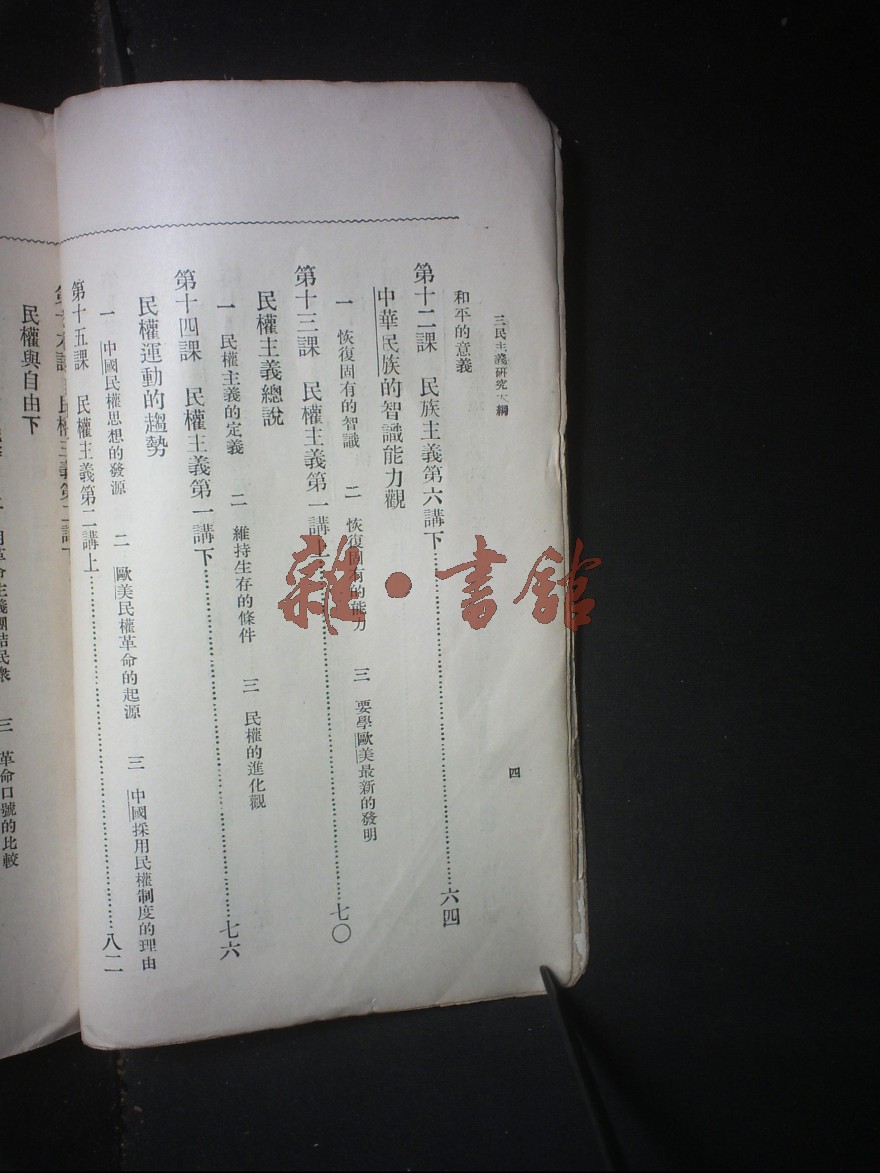 三民主義研究大綱
四
和平的意義
第十二課　民族主義第六講下……六四
中華民族的智識能力觀
一　恢復固有的智識　二　恢復固有的能力　三　要學歐美最新的發明
第十三課　民權主義第一講上……七〇
民權主義總說
一　民權主義的定義　二　維持生存的條件　三　民權的進化觀
第十四課　民權主義第一講下……七六
民權運動的趨勢
一　中國民權思想的發源　二　歐美民權革命的起源　三　中國採用民權制度的理由
第十五課　民權主義第二講上……八二
民權與自由下
革命主義團結民衆　三　革命口號的比較
雜·書館